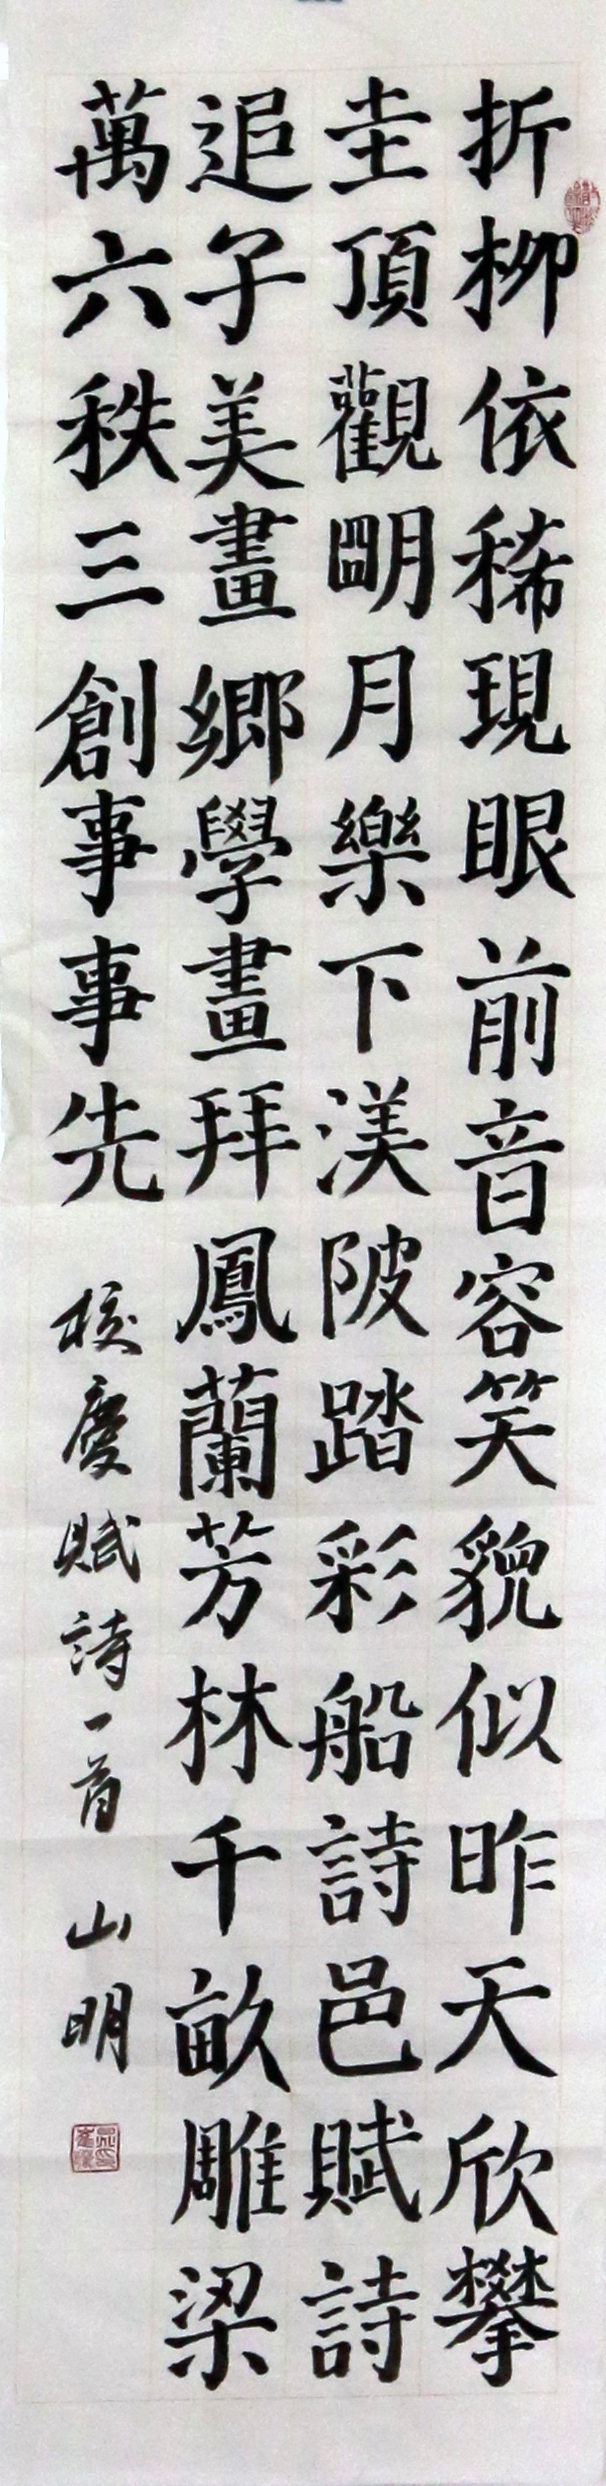 折柳依稀現眼前音容笑貌似昨天欣攀
圭頂觀朙月樂下渼陂踏彩船詩邑賦詩
追子美畫鄉學畫拜鳳蘭芳林千畝雕梁
萬六秩三創事事先
校慶賦詩一首 山明